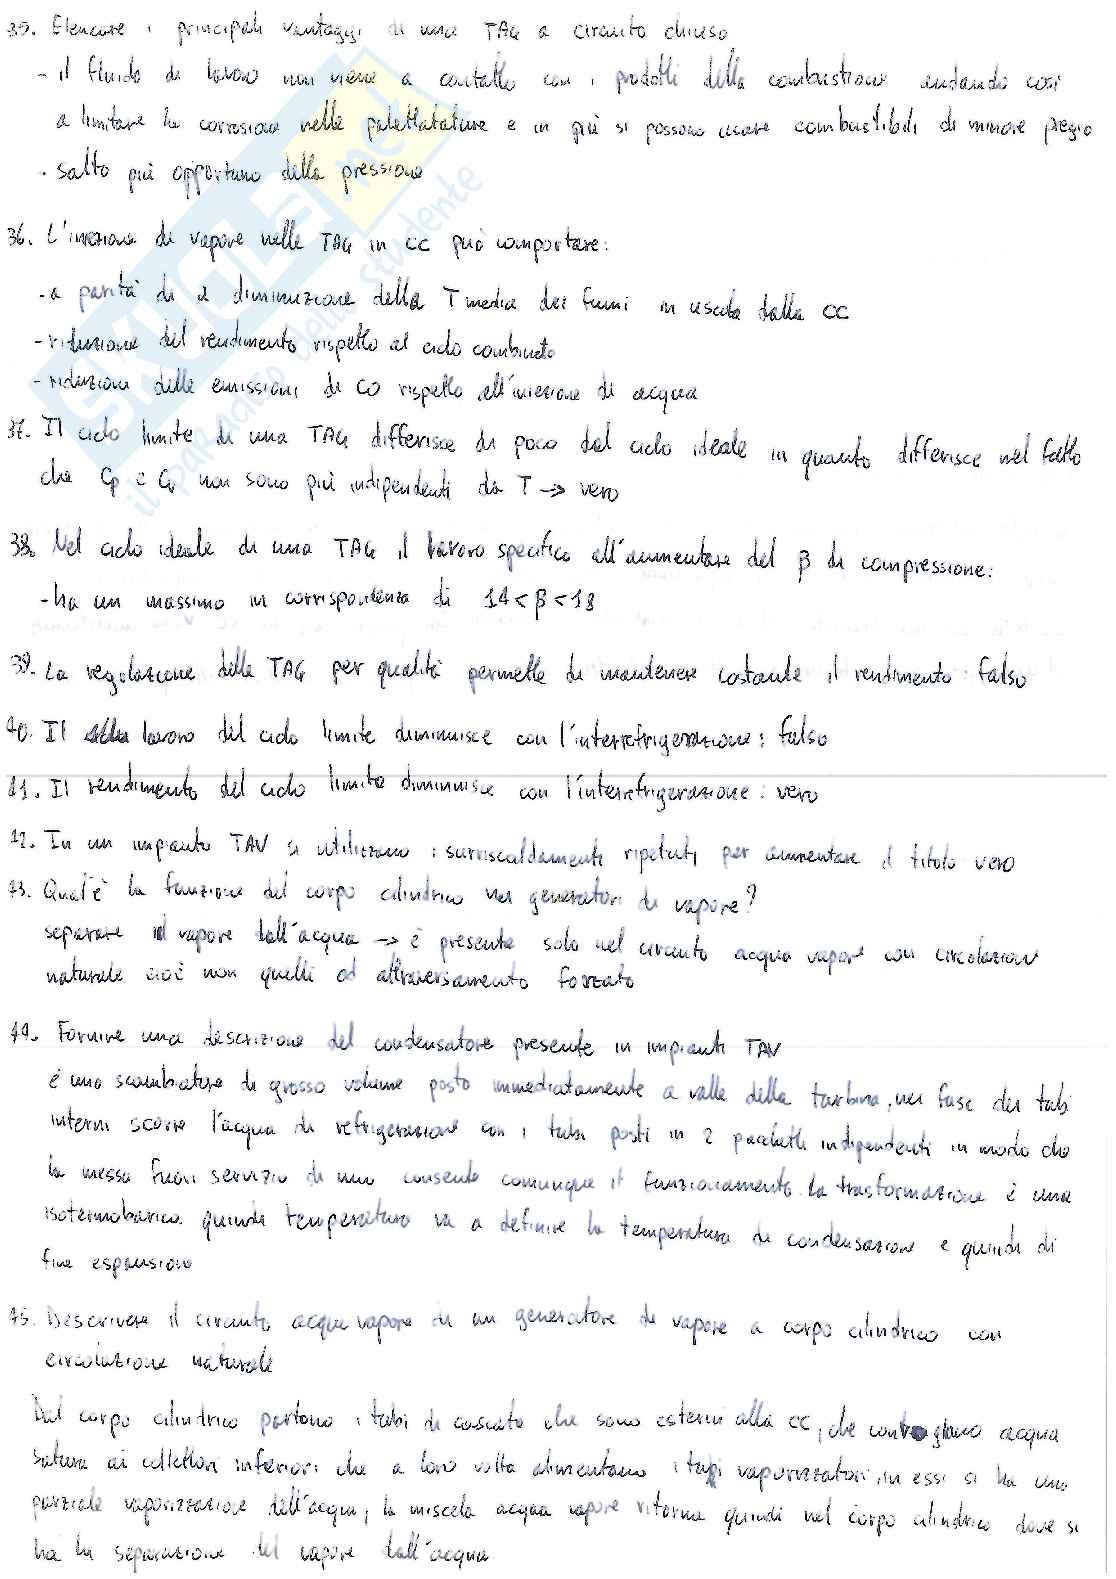 35. Elencare i principali vantaggi di una TAG a circuito chiuso
- il fluido di lavoro non viene a contatto con i prodotti della combustione andando così
a limitare la corrosione nelle palettature e in più si possono usare combustibili di minore pregio
- salto più opportuno della pressione
36. L'iniezione di vapore nelle TAG in CC può comportare:
- a parità di α diminuzione della T media dei fumi in uscita dalla CC
- riduzione del rendimento rispetto al ciclo combinato
- riduzione delle emissioni di CO rispetto all'iniezione di acqua
37. Il ciclo limite di una TAG differisce di poco dal ciclo ideale in quanto differisce nel fatto
che Cp e Cv non sono più indipendenti da T → vero
38. Nel ciclo ideale di una TAG il lavoro specifico all'aumentare del β di compressione:
- ha un massimo in corrispondenza di 14 < β < 18
39. La regolazione delle TAG per qualità permette di mantenere costante il rendimento: falso
40. Il lavoro del ciclo limite diminuisce con l'interrefrigerazione: falso
41. Il rendimento del ciclo limite diminuisce con l'interrefrigerazione: vero
42. In un impianto TAV si utilizzano i surriscaldamenti ripetuti per aumentare il titolo vero
43. Qual'è la funzione del corpo cilindrico nei generatori di vapore?
separare il vapore dall'acqua → è presente solo nel circuito acqua vapore con circolazione
naturale cioè non quelli ad attraversamento forzato
44. Fornire una descrizione del condensatore presente in impianti TAV
è uno scambiatore di grosso volume posto immediatamente a valle della turbina, nei fasc dei tubi
interni scorre l'acqua di refrigerazione con i tubi posti in 2 pacchetti indipendenti in modo che
la messa fuori servizio di uno consente comunque il funzionamento. la trasformazione è una
isotermobarica quindi temperatura va a definire la temperatura di condensazione e quindi di
fine espansione
45. Descrivere il circuito acqua vapore di un generatore di vapore a corpo cilindrico con
circolazione naturale
Dal corpo cilindrico partono i tubi di cascata che sono esterni alla CC, che convogliano acqua
satura ai collettori inferiori che a loro volta alimentano i tubi vaporizzatori, in essi si ha una
parziale vaporizzazione dell'acqua, la miscela acqua vapore ritorna quindi nel corpo cilindrico dove si
ha la separazione del vapore dall'acqua
SKUOLA.net
il paradiso dello studente